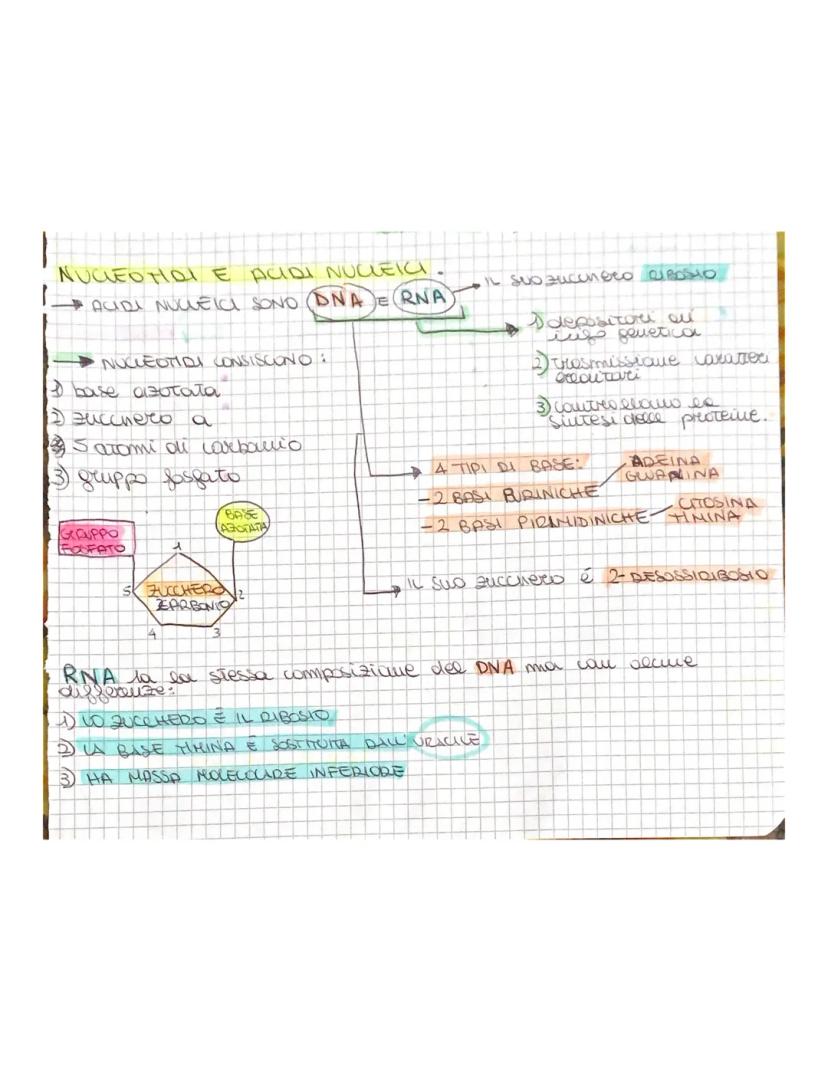 NUCLEOTIDI E ACIDI NUCLEICI.
→ ACIDI NUCLEICI SONO DNA E RNA → IL SUO ZUCCHERO RIBOSIO
1) depositari di info genetica
2) trasmissione caratteri ereditari
3) controllano la sintesi delle proteine.
→ NUCLEOTIDI CONSISCONO:
1) base azotata
2) zucchero a
5 atomi di carbonio
3) gruppo fosfato
4 TIPI DI BASE:
- 2 BASI PURINICHE
ADEINA
GUANINA
- 2 BASI PIRAMIDINICHE
CITOSINA
TIMINA
→ IL SUO ZUCCHERO É 2-DESOSSIRIBOSIO
GRUPPO
FOSFATO
BASE
AZOTATA
1
5
ZUCCHERO
CARBONIO
2
4
3
RNA ha la stessa composizione del DNA ma con alcune
differenze:
1) LO ZUCCHERO É IL RIBOSIO
2) LA BASE TIMINA É SOSTITUITA DALL'URACILE
3) HA MASSA MOLECOLARE INFERIORE